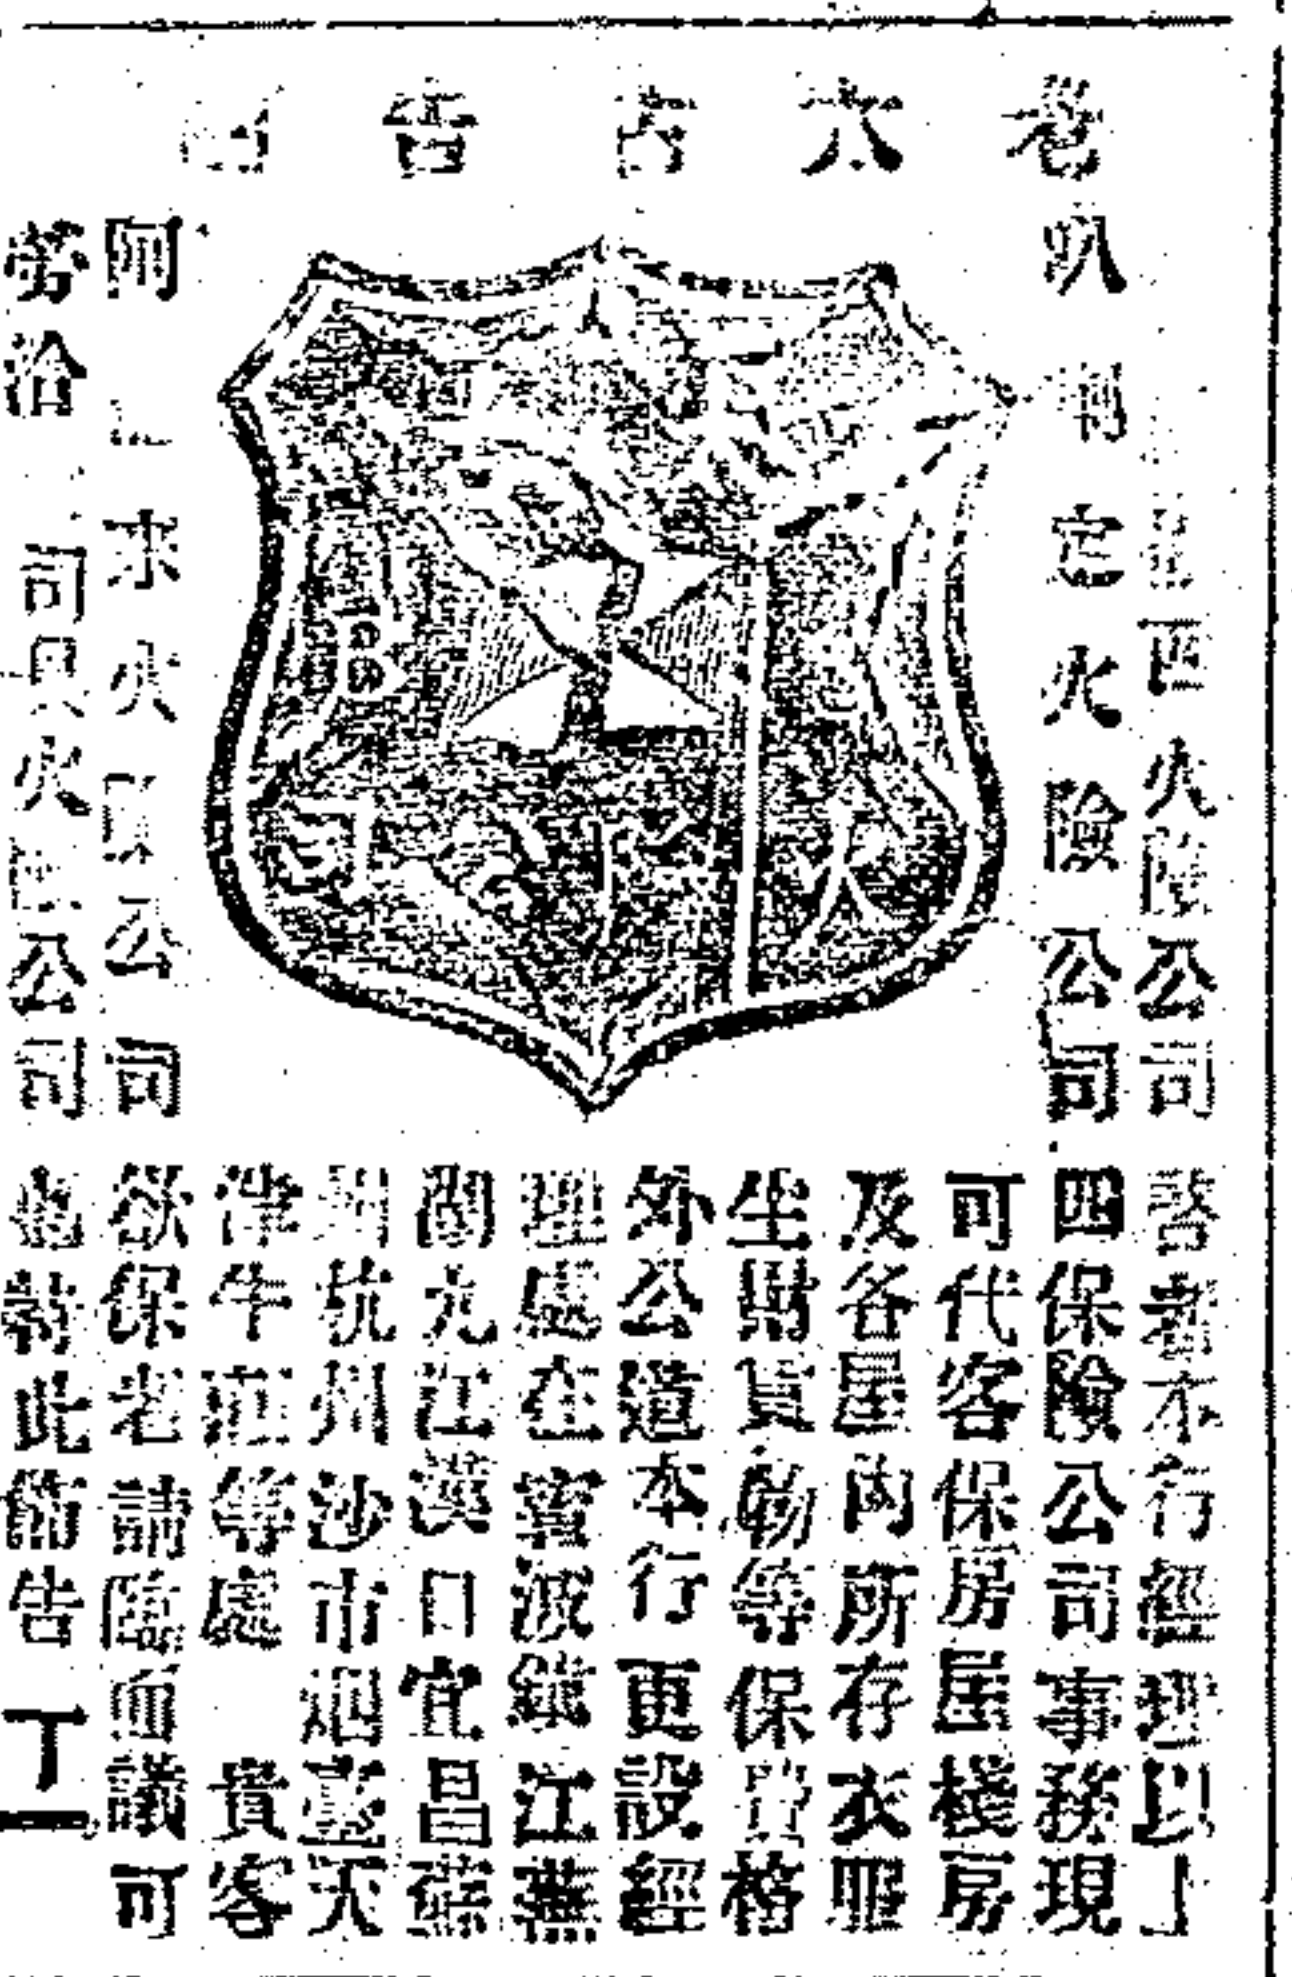 老太古告白
西火險公司
叭刺定火險公司
1861
阿來火險公司
勞洽司火險公司
啓者本行經理以上
四保險公司事務現
可代客保房屋棧房
及各屋內所存衣服
生財貨物等保費格
外公道本行更設經
理處在寧波鎮江蕪
湖九江漢口宜昌蘇
州杭州沙市烟臺天
津牛莊等處 貴客
欲保者請臨面議可
也特此佈告